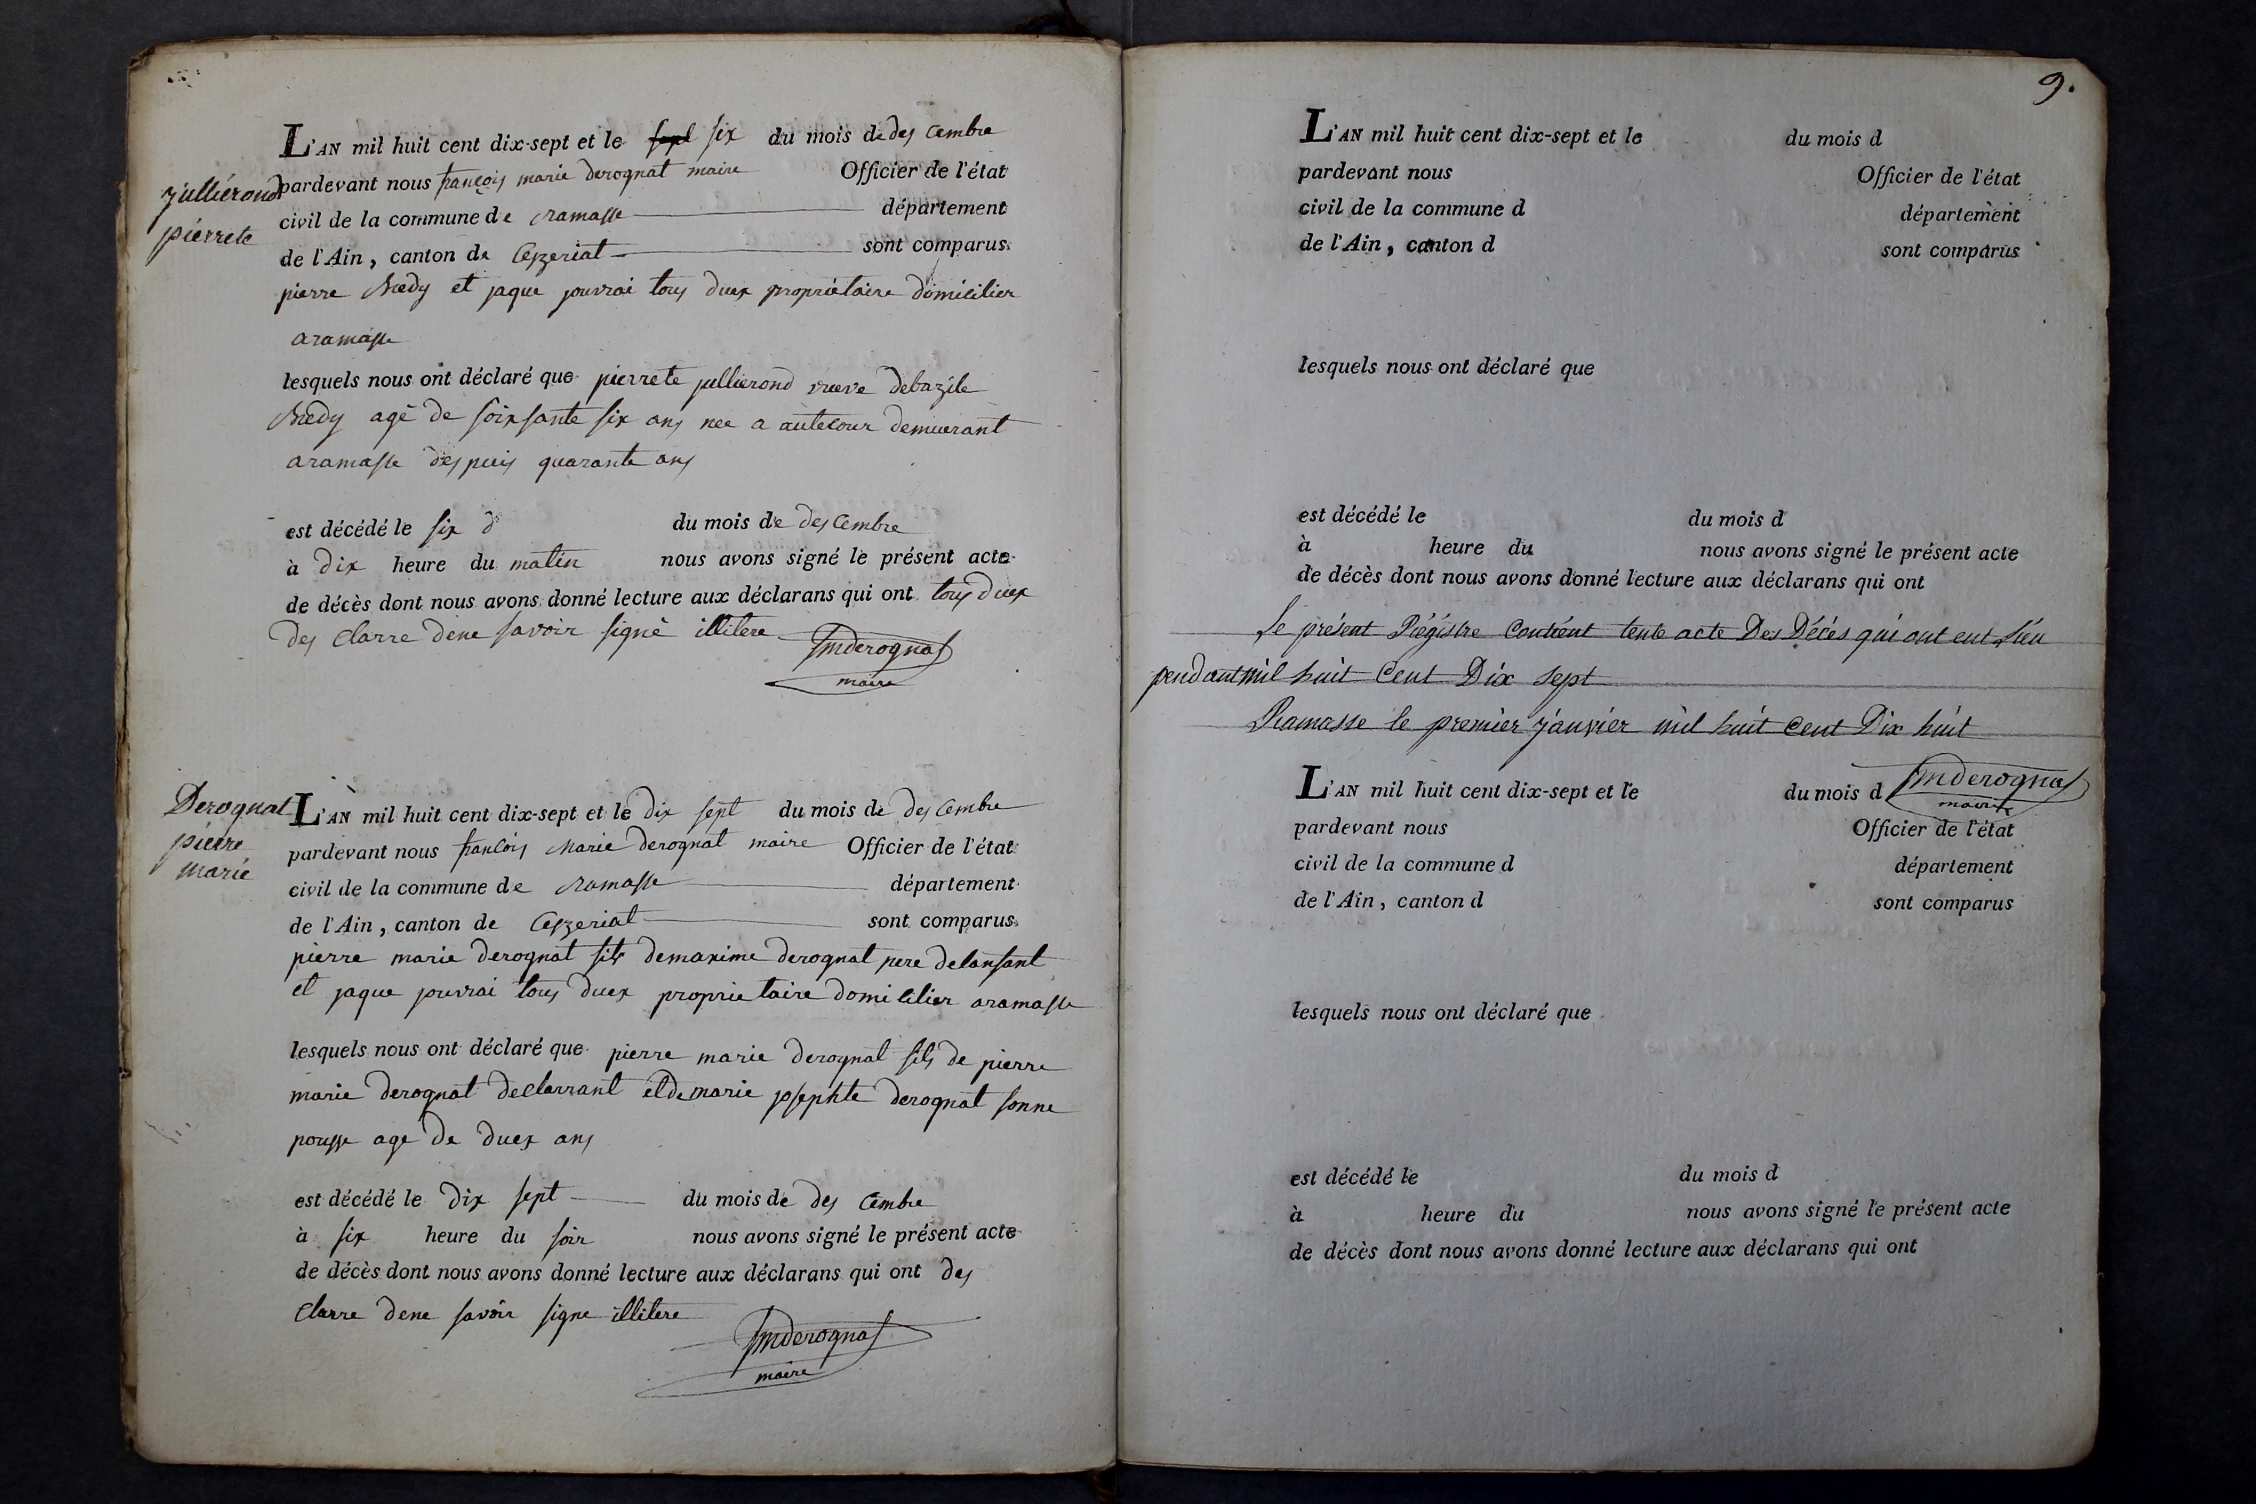 L'AN mil huit cent dix-sept et le sept six du mois de des cembre
julliérond pardevant nous françois marie derognat maire Officier de l'état
pierrete civil de la commune de ramasse département
de l'Ain, canton de Ceyzeriat sont comparus
pierre et jaque jouvrai tous duex propriétaire domicilier
aramasse
lesquels nous ont déclaré que pierrete jullierond vueve debazile
agé de soixsante six ans nee a autecour demuerant
aramasse des puis quarante ans
est décédé le six d du mois de des Cembre
à dix heure du matin nous avons signé le présent acte
de décès dont nous avons donné lecture aux déclarans qui ont tous duex
des Clarre dene savoir signé illitere
fmderognat
maire
Derognat L'AN mil huit cent dix-sept et le dix sept du mois de des Cembre
pierre pardevant nous françois Marie derognat maire Officier de l'état
marie civil de la commune de Ramasse département
de l'Ain, canton de Ceyzeriat sont comparus
pierre marie derognat fils demaxime derognat pere delansant
et jaque jouvrai tous duex proprietaire domicilier aramasse
lesquels nous ont déclaré que pierre marie derognat fils de pierre
marie derognat declarrant et de marie josephte derognat sonne
pousse age de duex ans
est décédé le dix sept du mois de des Cembre
à six heure du soir nous avons signé le présent acte
de décès dont nous avons donné lecture aux déclarans qui ont des
Clarre dene savoir signe illitere
fmderognat
maire
9.
L'AN mil huit cent dix-sept et le du mois d
pardevant nous Officier de l'état
civil de la commune d département
de l'Ain, canton d sont comparus
lesquels nous ont déclaré que
est décédé le du mois d
à heure du nous avons signé le présent acte
de décès dont nous avons donné lecture aux déclarans qui ont
Le présent Régistre Contient tente acte Des Décès qui ont eut Lieu
pendant mil huit Cent Dix sept
Ramasse le premier janvier mil huit Cent Dix huit
fmderognat
maire
L'AN mil huit cent dix-sept et le du mois d
pardevant nous Officier de l'état
civil de la commune d département
de l'Ain, canton d sont comparus
lesquels nous ont déclaré que
est décédé le du mois d
à heure du nous avons signé le présent acte
de décès dont nous avons donné lecture aux déclarans qui ont